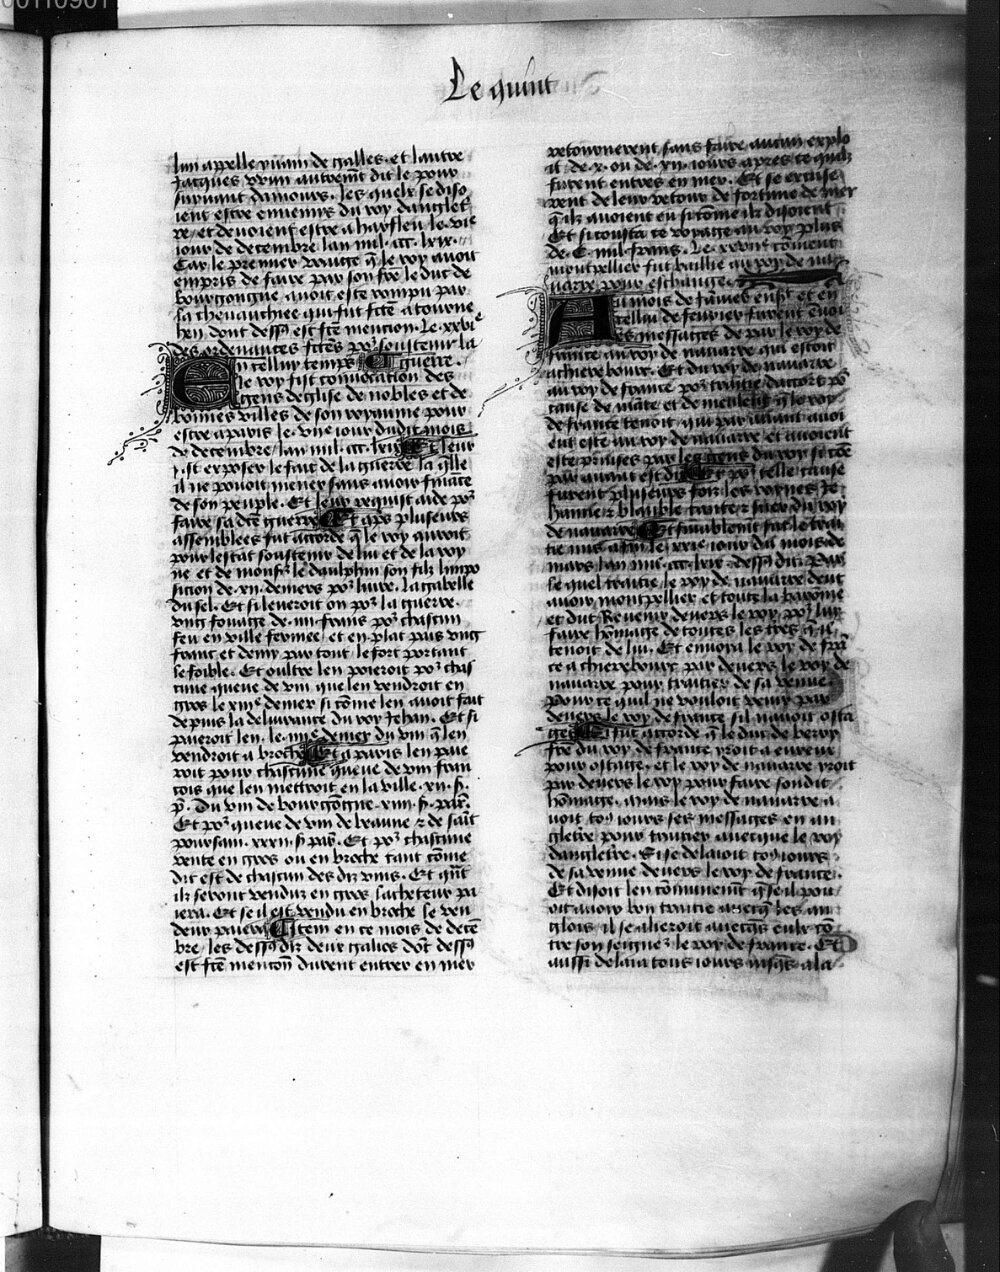 Le quint
lun appelle yuain de galles. et lautre
Jacques wyn autremt dit le pour
suyuant damours. Les quelx se diso
ient estre ennemis du roy danglet
re. et deuoient estre a harfleu le. vie
iour de decembre lan mil. ccc. lxix.
Car le premier voiage q̄ le roy auoit
empris de faire par son fre le duc de
bourgongne auoit este rompu par
sa cheuauchiee qui fut fcte a tourne
hen dont dess est fcte mention. Le. xxvie
des ordenances fctes por soustenir la
En celluy temps guerre.
le roy fist conuocation des
gens deglise de nobles et de
bonnes villes de son royaume pour
estre a paris le. vije iour dudit mois
de decembre lan mil. ccc. lxix Et leur
fist exposer le fait de la guerre la qlle
il ne pouoit mener sans auoir finance
de son peuple. Et leur requist aide por
faire sa dcte guerre Et aps plusieurs
assemblees fut accorde q̄ le roy auroit
pour lestat soustenir de lui et de la roy
ne et de monsr le daulphin son filz limpo
sicion de. xii. deniers por liure. La gabelle
du sel. Et si leueroit on por la guerre.
vng fouage de. iiij frans por chascun
feu en ville fermee. et en plat pais vng
franc et demy par tout le fort portant
le foible. Et oultre len poieroit por chas
cune queue de vin que len vendroit en
gros le xiije denier si comme len auoit fait
depuis la deliurance du roy Jehan. Et si
paieroit len. le. iiije denier du vin q̄ len
vendroit a broche Et a paris len paie
roit pour chascune queue de vin fran
cois que len mettroit en la ville. xii. s.
p. Du vin de bourgongne. xviij. s. par.
Et por queue de vin de beaune et de saīt
poursain. xxxii. s. par. Et por chascune
vente en gros ou en broche tant comme
dit est de chascun des diz vins. Et qnt
ilz seront venduz en gros lacheteur pa
iera. Et se il est vendu en broche le ven
deur paiera Item en ce mois de decē
bre. les dess diz deux galics dōt dess
est fcte mencion durent entrer en mer
retournerent sans faire aucun explo
it. de. x. ou de. xii. iours apres ce qulz
furent entres en mer. Et se excuse
rent de leur retour de fortune de mer
q̄ ilz auoient eu si comme ilz disoient
Et si cousta ce voyage au roy plus
de. C. mil. frans. Le. xxvije comment
montpellier fut baillie au roy de na
uarre pour eschange.
Au mois de Januier ensuit et en
cellui de feurier furent enuoi
es messages de par le roy de
france au roy de nauarre qui estoit
a chierebourc. Et du roy de nauarre
au roy de france por traitie daccort por
cause de mante et de meulenc q̄ le roy
de france tenoit. qui par auant auoi
ent este au roy de nauarre et auoient
este prinses par les gens du roy si come
par auant est dit Et por celle cause
furent plusieurs foiz les roynes Je
hanne et blanche traitier sur du roy
de nauarre Et finablemt fut le trai
tie mis a fin le. xxixe iour du mois de
mars lan mil. ccc. lxix. dess dit. Par
le quel traitie le roy de nauarre deut
auoir montpellier et toute la baronie
et dut Reuenir deuers le roy por lui
faire hommage de toutes les tres q̄ il
tenoit de lui. Et enuoia le roy de fra
ce a chierebourc par deuers le roy de
nauarre pour traitier de sa venue
Pour ce quil ne vouloit venir par
deuers le roy de france sil nauoit osta
ges Et fut accorde q̄ le duc de berry
fre du roy de france yroit a eureux
pour ostage. et le roy de nauarre yroit
par deuers le roy pour faire son dit
hommage. mais le roy de nauarre a
uoit tous iours ses messages en an
gletre pour traitier auecque le roy
dangletre. Si se delaioit tous iours
de sa venue deuers le roy de france.
Et disoit len communemt q̄ se il pou
oit auoir bon traitie auecqs les an
glois. il se alieroit auecqs eulx cō
tre son seigneur le roy de france. Et
aussi delaia tous iours iusqs a la